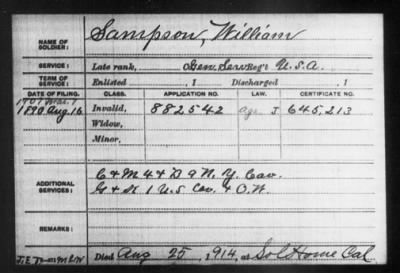 NAME OF SOLDIER: Sampson, William
SERVICE: Late rank, Gen. Serv Reg't U.S.A.
TERM OF SERVICE: Enlisted , 1 Discharged , 1
DATE OF FILING. CLASS. APPLICATION NO. LAW. CERTIFICATE NO.
1907 Mar. 7
1890 Aug 16 Invalid, 882542 645,213
Widow,
Minor,
ADDITIONAL SERVICES: C & M 4 & D 9 N.Y. Cav.
G & K 1 U.S. Cav. &
REMARKS:
Died Aug 25, 1914, at Sol Home Cal